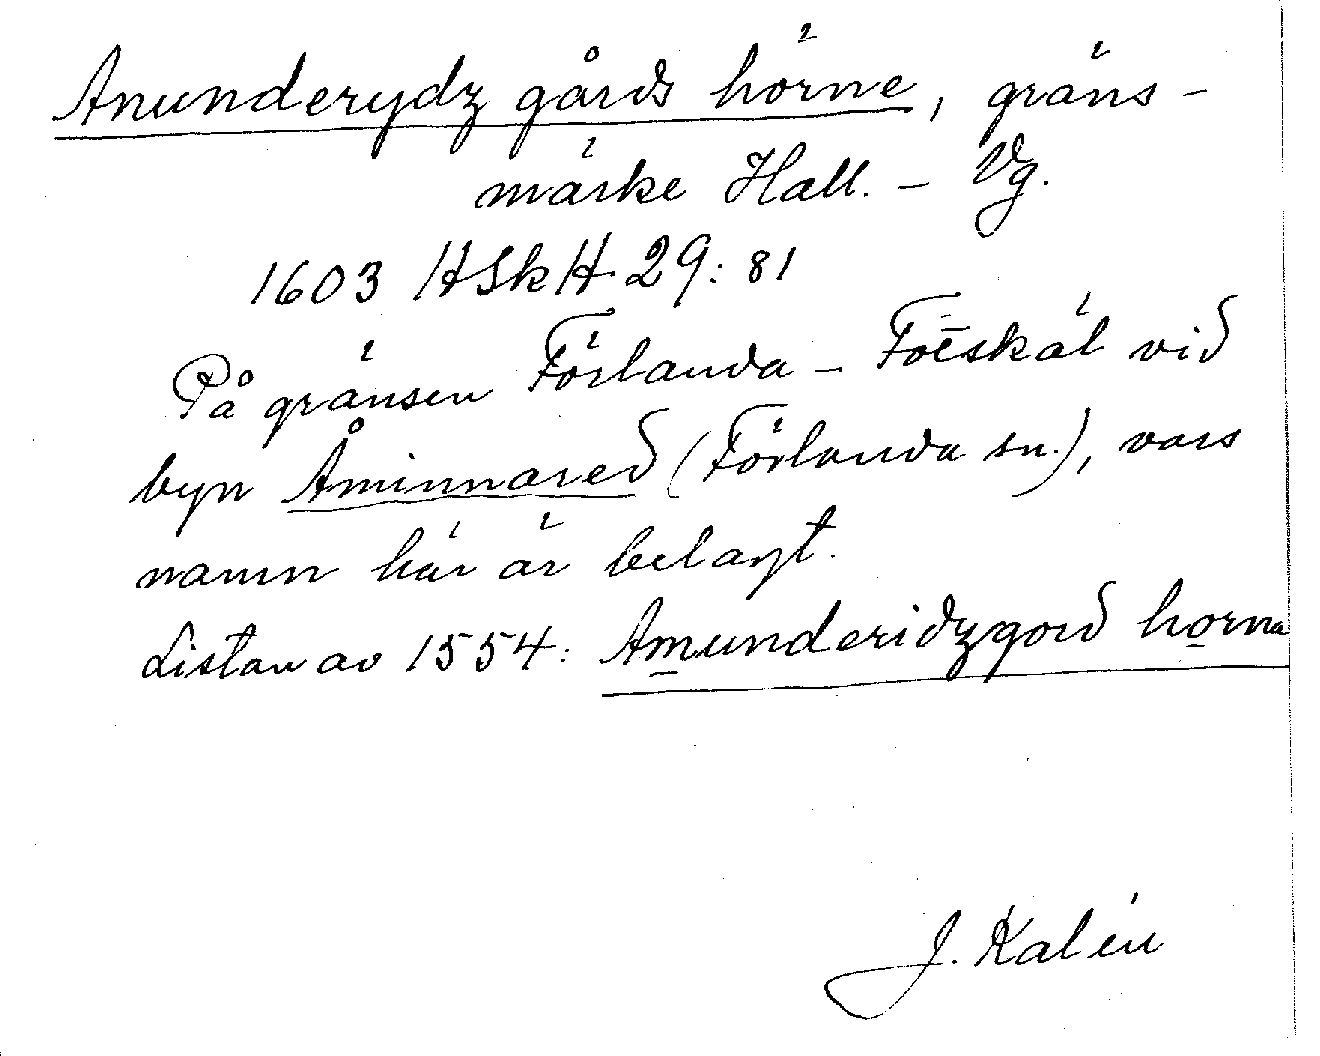 Anunderydz gårds hörne, gräns-
märke Hall. – Vg.
1603 HSkH 29: 81
På gränsen Förlanda – Fotskäl vid
byn Åminnared (Förlanda sn.), vars
namn här är belagt.
Listan av 1554: Amunderidzgord horna
J. Kalén